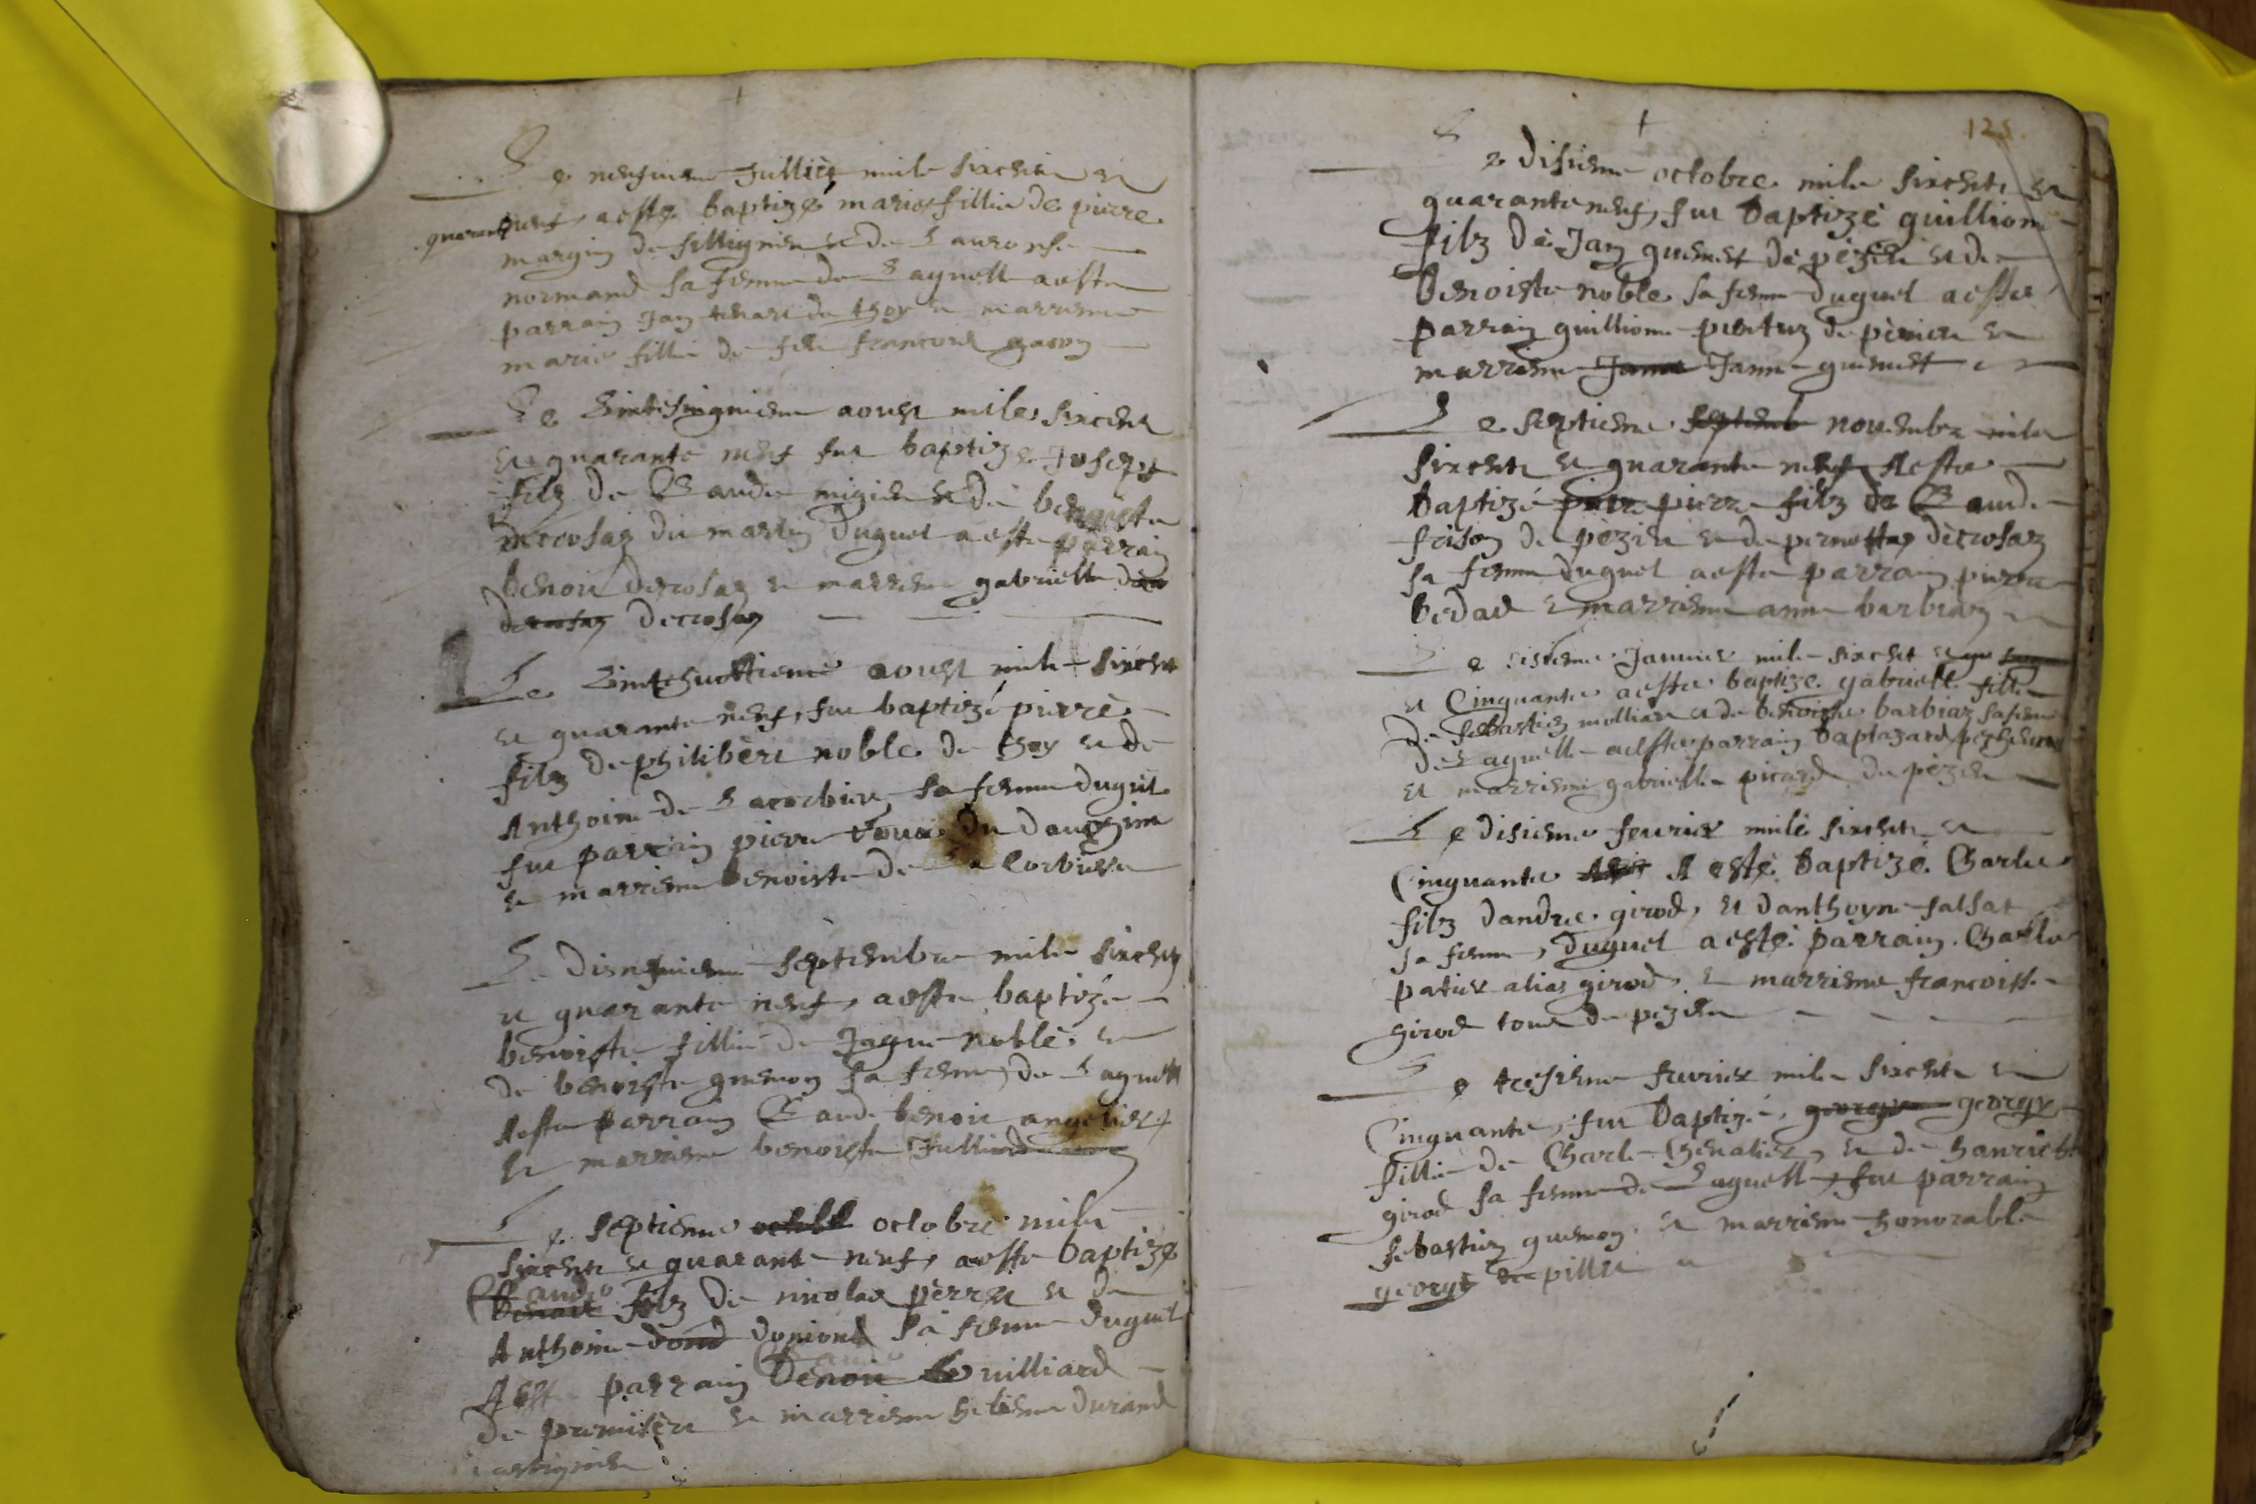 Le neufvieme Jullier mile sixcents et
quaranteneuf, aeste baptizé marie fillie de pierre
margin de sillignieu et de Lauronse
normand sa femme de Laquelle aeste
parrain Jan tenard de thoy et marrieme
marie fillie de feu francois gavoy
Le Vintesinquieme aoust mile, sixcent
et quarante neuf fut baptizé Joseph
filz de Claude migieu et de benoiste
decrosaz du martin duquel aeste parrain
benoit decrosaz et marrieme gabrielle
decrosaz decrosaz
Le Vintehuottieme aoust mile sixcent
et quarante neuf, fut baptizé pierre
filz de philibert noble de thoy et de
Anthoine de Lacorbiere, sa femme duquel
fut parrain pierre du dauphine
et marrieme benoiste de La Corbiere
Le disnefvieme septembre mile sixcents
et quarante neuf, aeste baptizée
benoiste fillie de Jaque noble, et
de benoiste guemoy sa femme, de Laquelle
Aeste parrain Claude benoit angelier
et marrieme benoiste Julliard
Le septieme octobre mile
sixcents et quarante neuf, aeste baptizé
Claude
benoit filz de nicolas perret et de
Anthoine doniond sa femme duquel
Claude
Aeste parrain benoit villiard
de premilieu et marrieme helene durand
125
Le disieme octobre mile sixcents et
quarante neuf, fut baptizé guilliome
filz de Jan guemet de pezieu et de
benoiste noble sa femme duquel aeste
parrain guilliome pertuz de pezieu et
marrieme Janne Janne guemet
Le septieme septemb novembre mile
sixcents et quarante neuf Aeste
baptizé pierre pierre filz de Claude
frison de pezieu et de pernette decrosaz
sa femme duquel aeste parrain pierre
bedat et marrieme anne barbiaz
Le sisieme Janvier mile sixcent
et Cinquante aeste baptizé gabrielle fillie
de sebastien molliard et de benoiste barbiaz sa femme
de Laquelle aeste parrain baptazard
et marrieme gabrielle picard de pezieu
Le disieme fevrier mile sixcents et
Cinquante A esté baptizé Charle
filz dandre girod, et danthoyne falsat
sa femme, duquel aesté parrain Charle
patier alias girod, et marrieme francoisse
girod tous de pezieu
Le tresieme fevrier mile sixcents et
Cinquante, fut baptizé, georgye georgye
fillie de Charle Chevalier, et de hanriette
girod sa femme de Laquelle, fut parrain
sebastien guemoy et marrieme honorable
george de pillie